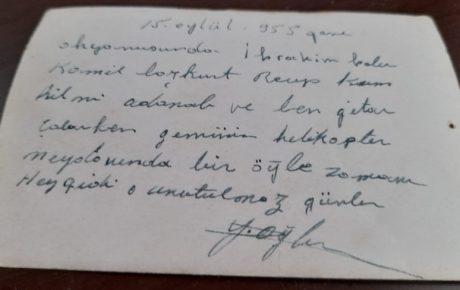 15. eylül. 955 gene
okyanusunda. İbrahim
Kâmil bozkurt Recep
hilmi adanalı ve ben gitar
çalarken geminin helikopter
meydanında bir öğle zamanı
Heygidi o unutulmaz günler